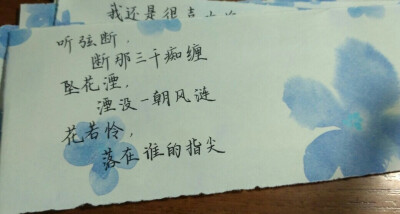 我还是很喜欢你
听弦断，
断那三千痴缠
坠花湮，
湮没一朝风涟
花若怜，
落在谁的指尖